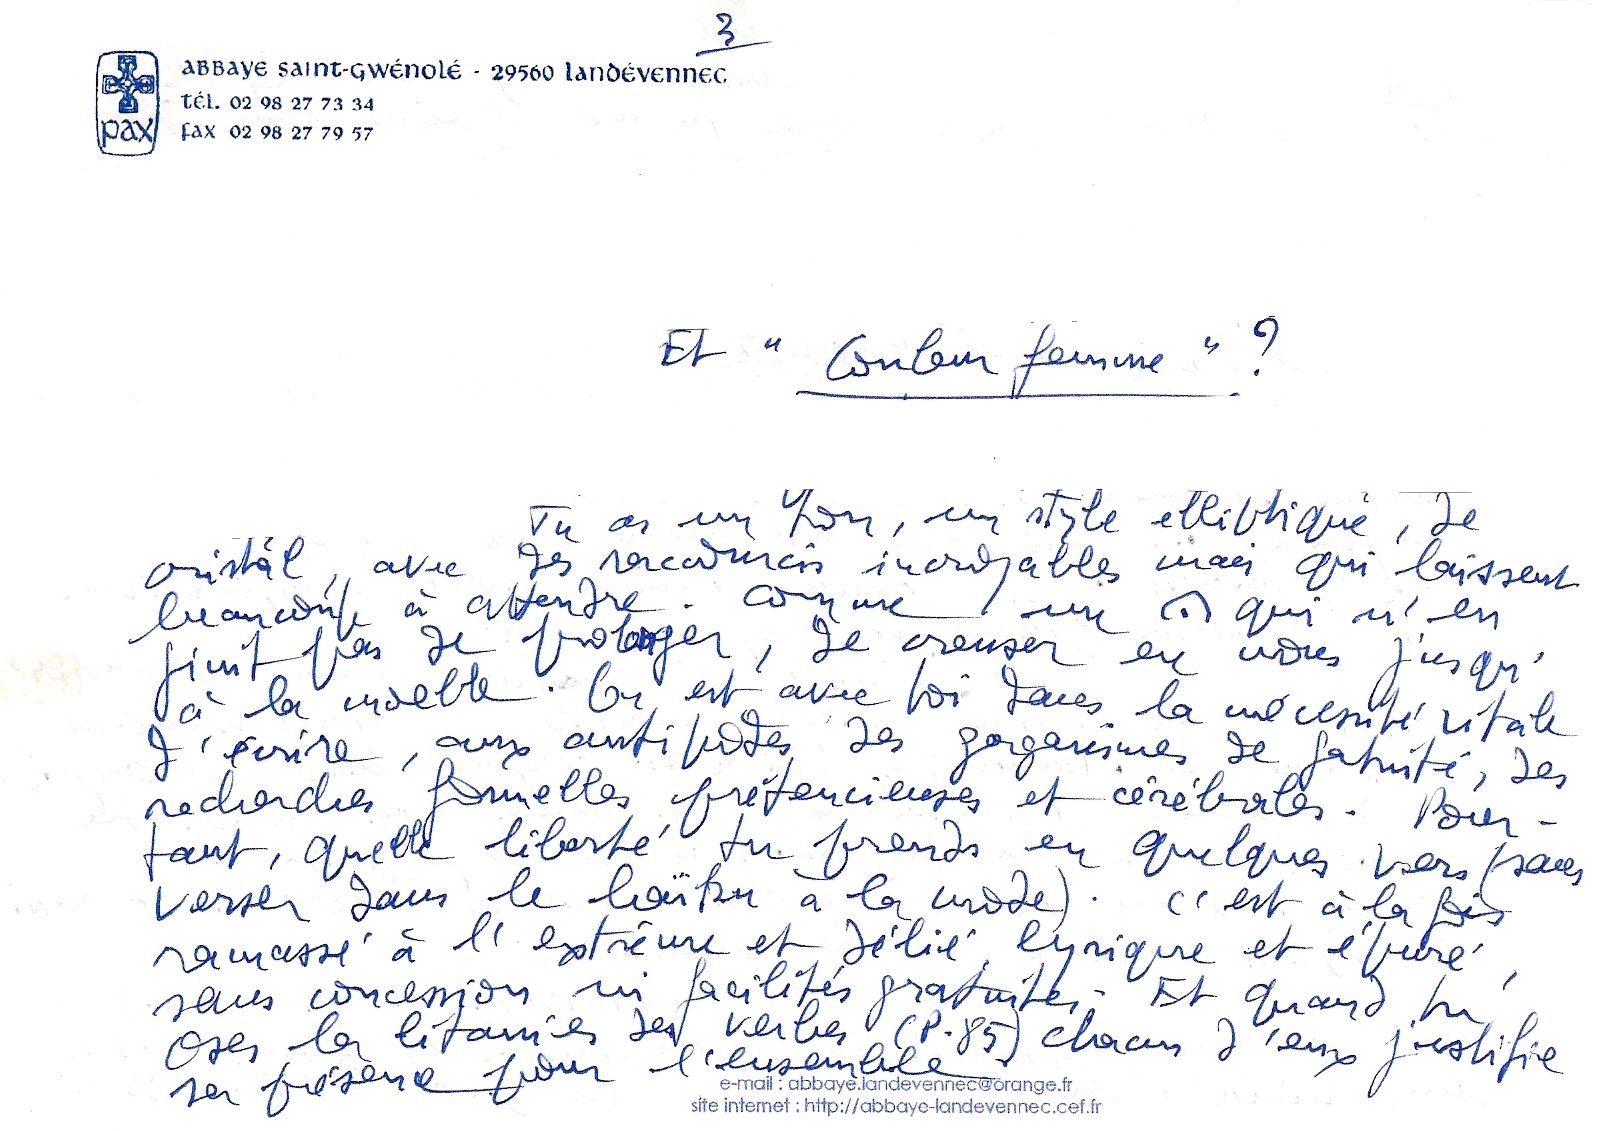 3
ABBAYE SAINT-GWÉNOLÉ - 29560 LANDÉVENNEC
TÉL. 02 98 27 73 34
FAX 02 98 27 79 57
PAX
Et " Couleur femme " ?
Tu as un ton, un style elliptique, de
cristal, avec des raccourcis incroyables mais qui laissent
beaucoup à attendre. Comme un qui n'en
finit pas de , de creuser en nous jusqu'
à la moelle. On est avec toi dans la nécessité vitale
d'écrire, aux antipodes des gargarismes de fatuité, des
recherches formelles prétencieuses et cérébrales. Pour-
tant, quelle liberté tu prends en quelques vers (sans
verser dans le haïku à la mode). C'est à la fois
ramassé à l'extrême et délié, lyrique et épuré,
sans concession ni facilités gratuites. Et quand tu
oses la litanies des verbes (P. 85) chacun d'eux justifie
sa présence pour l'ensemble
e-mail : abbaye.landevennec@orange.fr
site internet : http://abbaye-landevennec.cef.fr